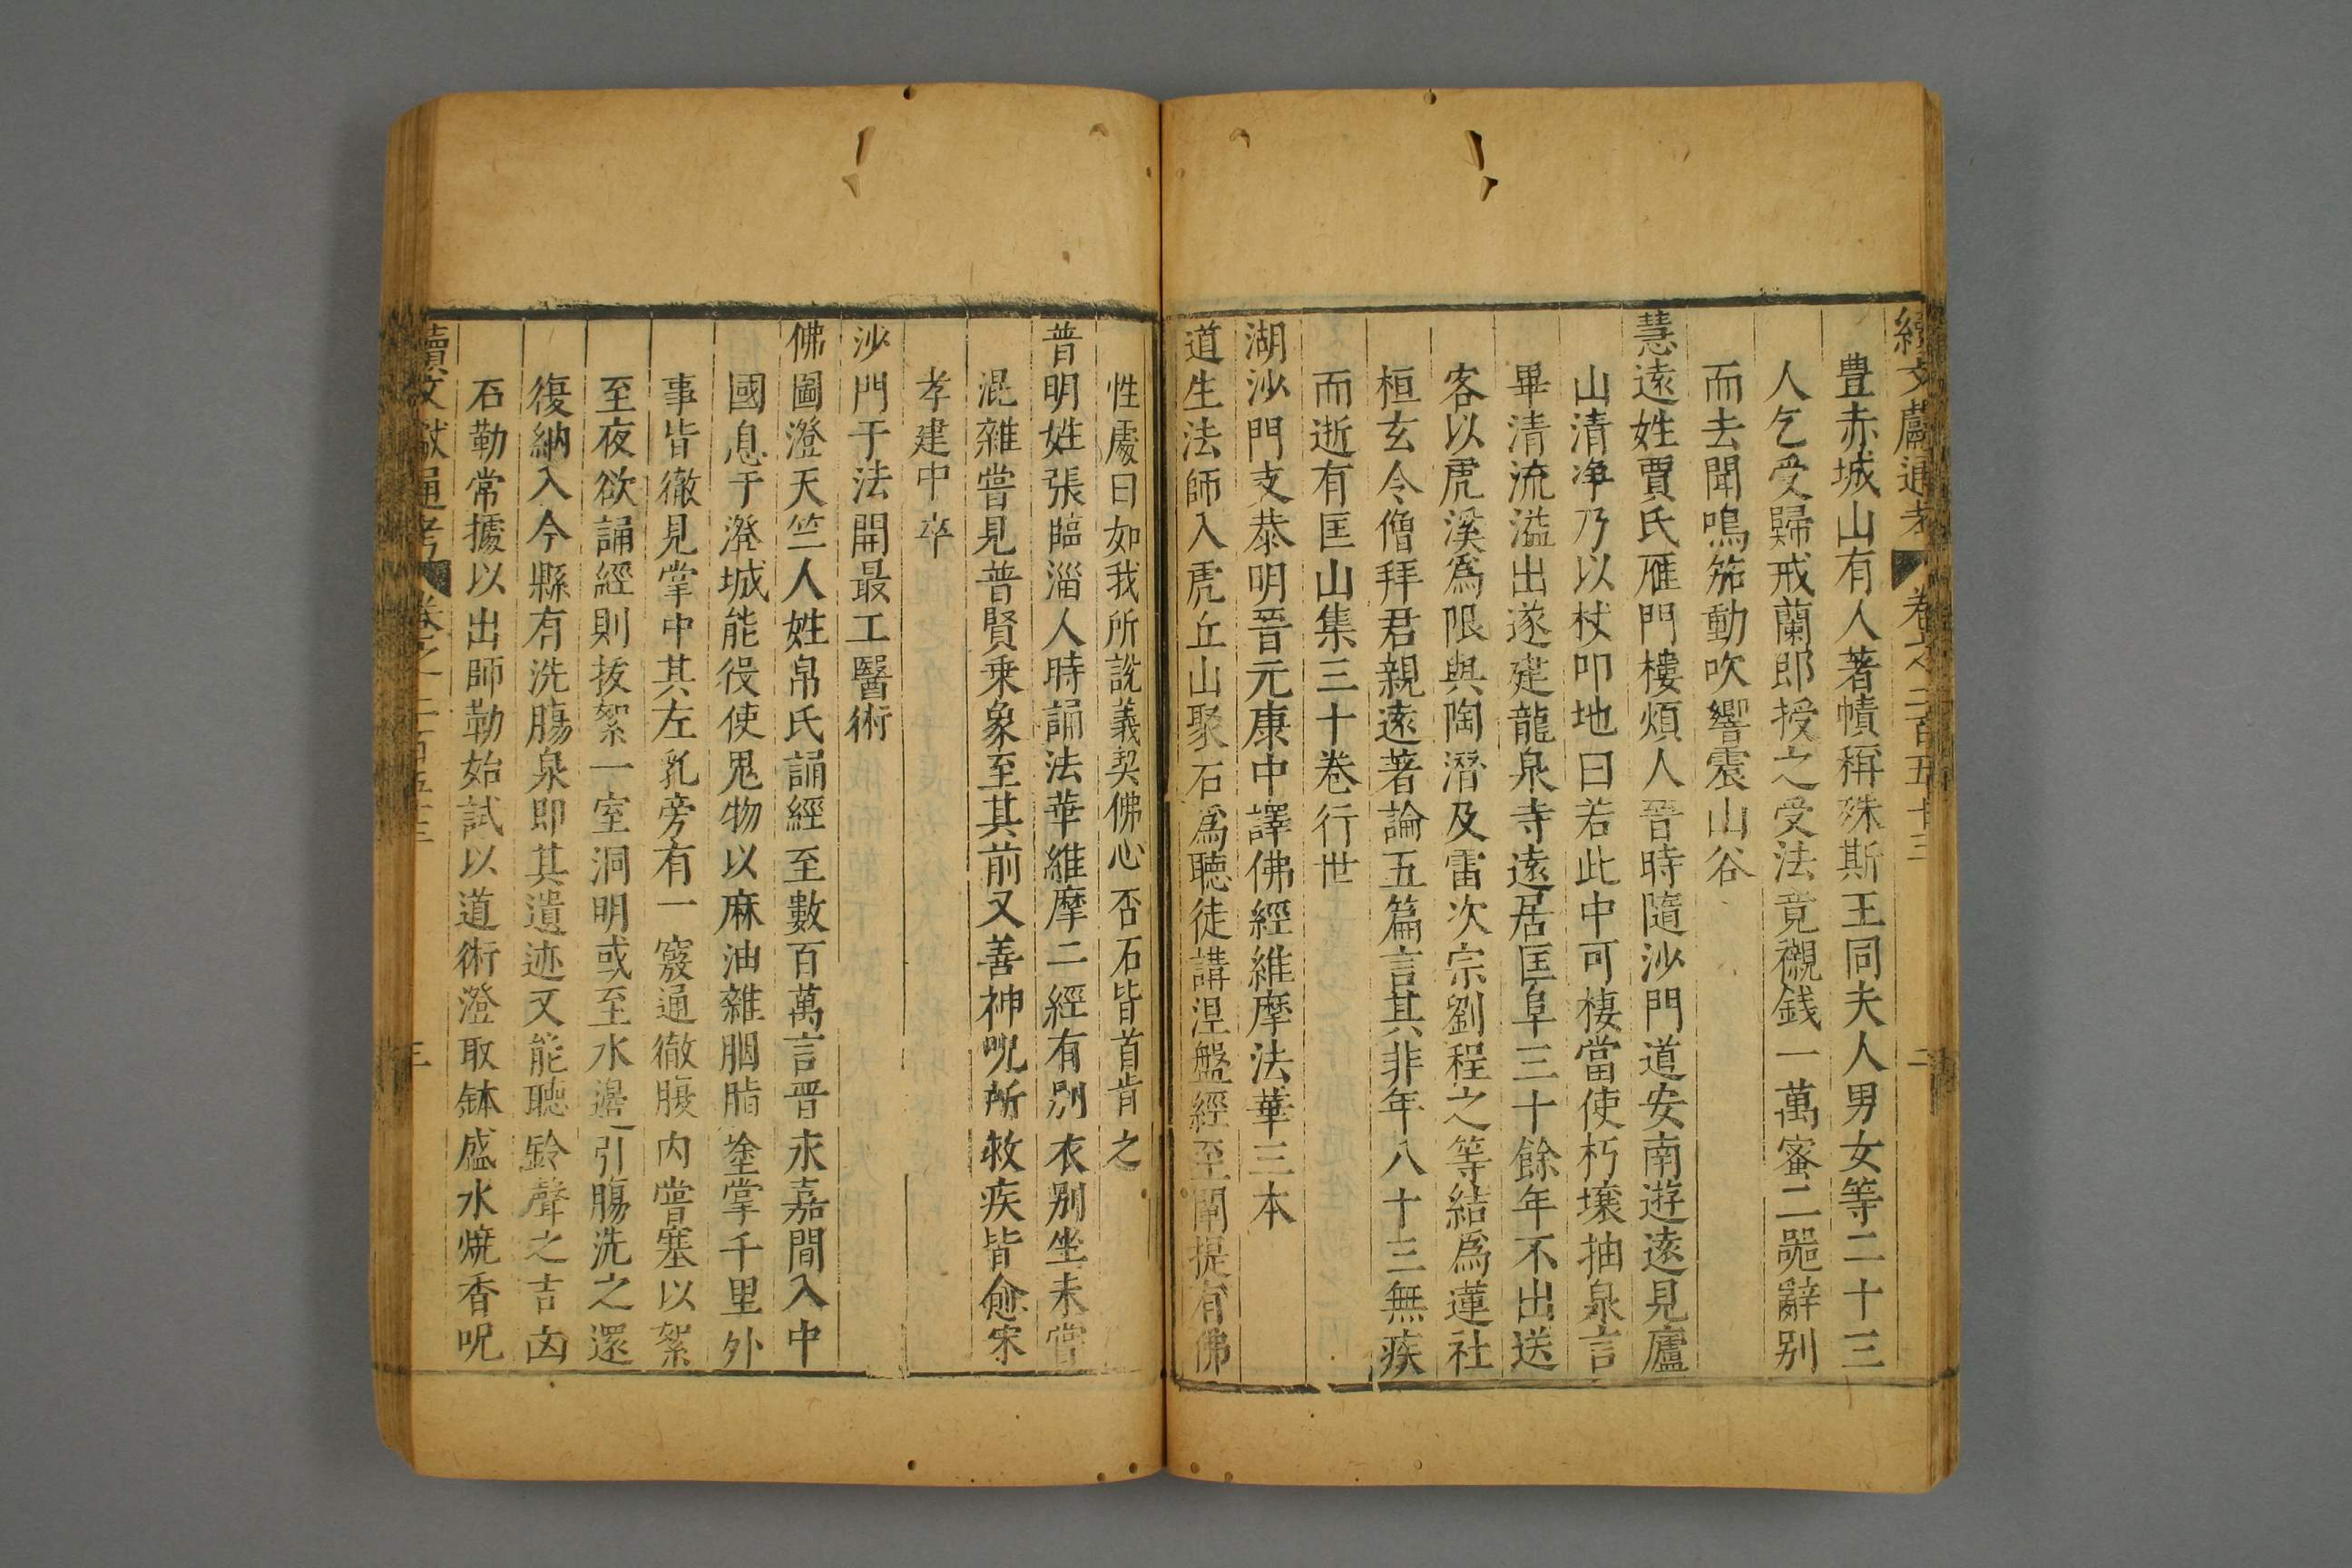 續文獻通考 卷之二百五十三 二
豊赤城山有人著幘稱殊斯王同夫人男女等二十三
人乞受歸戒蘭即授之受法竟襯錢一萬蜜二噐辭别
而去聞鳴笳動吹響震山谷
慧逺姓賈氏雁門樓煩人晉時隨沙門道安南遊逺見廬
山清净乃以杖叩地曰若此中可棲當使朽壤抽泉言
畢清流溢出遂建龍泉寺逺居匡阜三十餘年不出送
客以虎溪爲限與陶潛及雷次宗劉程之等結爲蓮社
桓玄令僧拜君親逺著論五篇言其非年八十三無疾
而逝有匡山集三十卷行世
湖沙門支恭明晉元康中譯佛經維摩法華三本
道生法師入虎丘山聚石爲聽徒講涅盤經至闡提有佛
性處曰如我所說義契佛心否石皆首肯之
普明姓張臨淄人時誦法華維摩二經有别衣别坐未甞
混雜嘗見普賢乗象至其前又善神呪所救疾皆愈宋
孝建中卒
沙門于法開最工醫術
佛圖澄天竺人姓帛氏誦經至數百萬言晋永嘉間入中
國息于澄城能役使鬼物以麻油雜胭脂塗掌千里外
事皆徹見掌中其左乳旁有一竅通徹腹内嘗塞以絮
至夜欲誦經則拔絮一室洞明或至水邉引膓洗之還
復納入今縣有洗膓泉即其遺迹又能聽鈴聲之吉凶
石勒常據以出師勒始試以道術澄取鉢盛水燒香呪
續文獻通考 卷之二百五十三 三